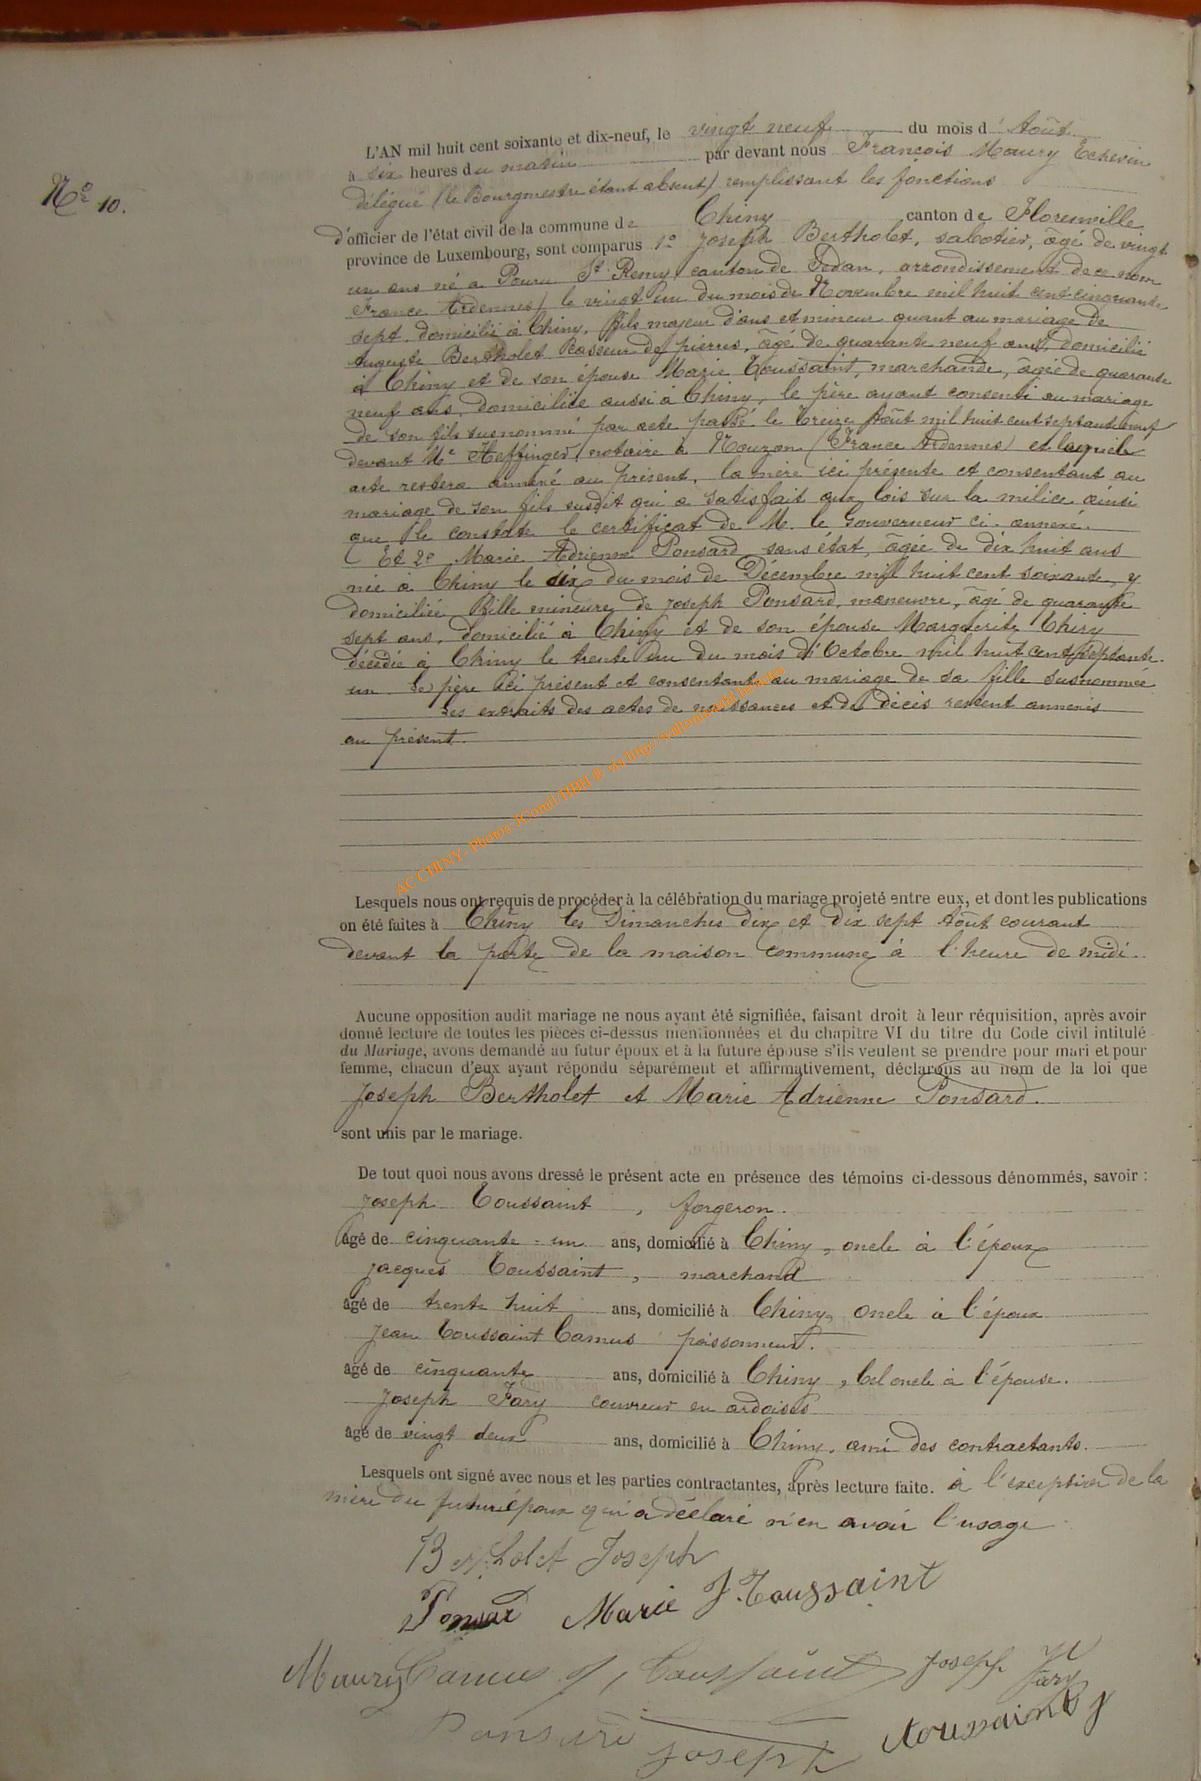 N° 10.
L'AN mil huit cent soixante et dix-neuf, le vingt neuf du mois d'Août
à six heures du matin par devant nous François Maury Echevin
délégué (le Bourgmestre étant absent) remplissant les fonctions
d'officier de l'état civil de la commune de Chiny canton de Florenville
province de Luxembourg, sont comparus 1° Joseph Bertholet, sabotier, âgé de vingt
un ans né à Pouru St Remy canton de Sedan, arrondissement de ce nom
France Ardennes) le vingt un du mois de Novembre mil huit cent cinquante
sept, domicilié à Chiny, fils majeur d'ans et mineur quant au mariage de
Auguste Bertholet Casseur de pierres, âgé de quarante neuf ans, domicilié
à Chiny et de son épouse Marie Toussaint, marchande, âgée de quarante
neuf ans, domiciliée aussi à Chiny, le père ayant consenti au mariage
de son fils susnommé par acte passé le treize Août mil huit cent septante neuf
devant Me Heffinger, notaire à Nouzon (France Ardennes) et lequel
acte restera annexé au présent, la mère ici présente et consentant au
mariage de son fils susdit qui a satisfait aux lois sur la milice ainsi
que le constate le certificat de M. le Gouverneur ci-annexé.
Et 2° Marie Adrienne Ponsard sans état, âgée de dix huit ans
née à Chiny le dix du mois de Décembre mil huit cent soixante, y
domiciliée, fille mineure de Joseph Ponsard, manœuvre, âgé de quarante
sept ans, domicilié à Chiny et de son épouse Marguerite Thiry
décédée à Chiny le trente un du mois d'Octobre mil huit cent septante-
un. Le père ici présent et consentant au mariage de sa fille susnommée
Les extraits des actes de naissances et de décès restent annexés
au présent.
AC CHINY - Photos JConil/HBH ©
Lesquels nous ont requis de procéder à la célébration du mariage projeté entre eux, et dont les publications
on été faites à Chiny les Dimanches dix et dix sept Août courant
devant la porte de la maison commune à l'heure de midi.
Aucune opposition audit mariage ne nous ayant été signifiée, faisant droit à leur réquisition, après avoir
donné lecture de toutes les pièces ci-dessus mentionnées et du chapitre VI du titre du Code civil intitulé
du Mariage, avons demandé au futur époux et à la future épouse s'ils veulent se prendre pour mari et pour
femme, chacun d'eux ayant répondu séparément et affirmativement, déclarons au nom de la loi que
Joseph Bertholet et Marie Adrienne Ponsard.
sont unis par le mariage.
De tout quoi nous avons dressé le présent acte en présence des témoins ci-dessous dénommés, savoir :
Joseph Toussaint, forgeron.
âgé de cinquante-un ans, domicilié à Chiny, oncle à l'époux
Jacques Toussaint, marchand
âgé de trente huit ans, domicilié à Chiny, oncle à l'époux
Jean Toussaint Camus poissonneur.
âgé de cinquante ans, domicilié à Chiny, bel oncle à l'épouse.
Joseph Fary couvreur en ardoises
âgé de vingt deux ans, domicilié à Chiny, ami des contractants.
Lesquels ont signé avec nous et les parties contractantes, après lecture faite. à l'exception de la
mère du futur époux qui a déclaré n'en avoir l'usage
Bertholet Joseph
Ponsard Marie J. Toussaint
Maury Camus J, Toussaint Joseph Fary
Ponsard Joseph Toussaint J